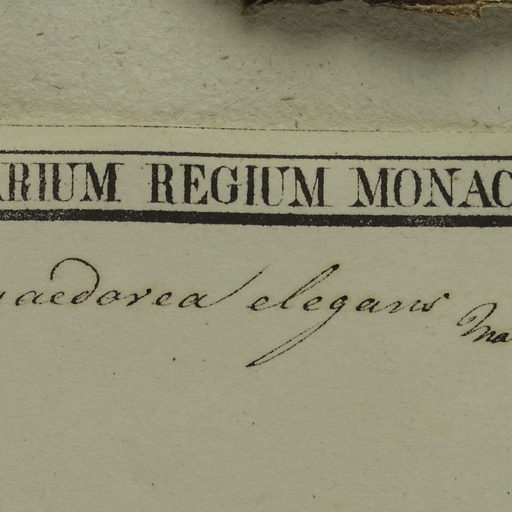 ARIUM REGIUM MONAC
aedorea elegans Ma